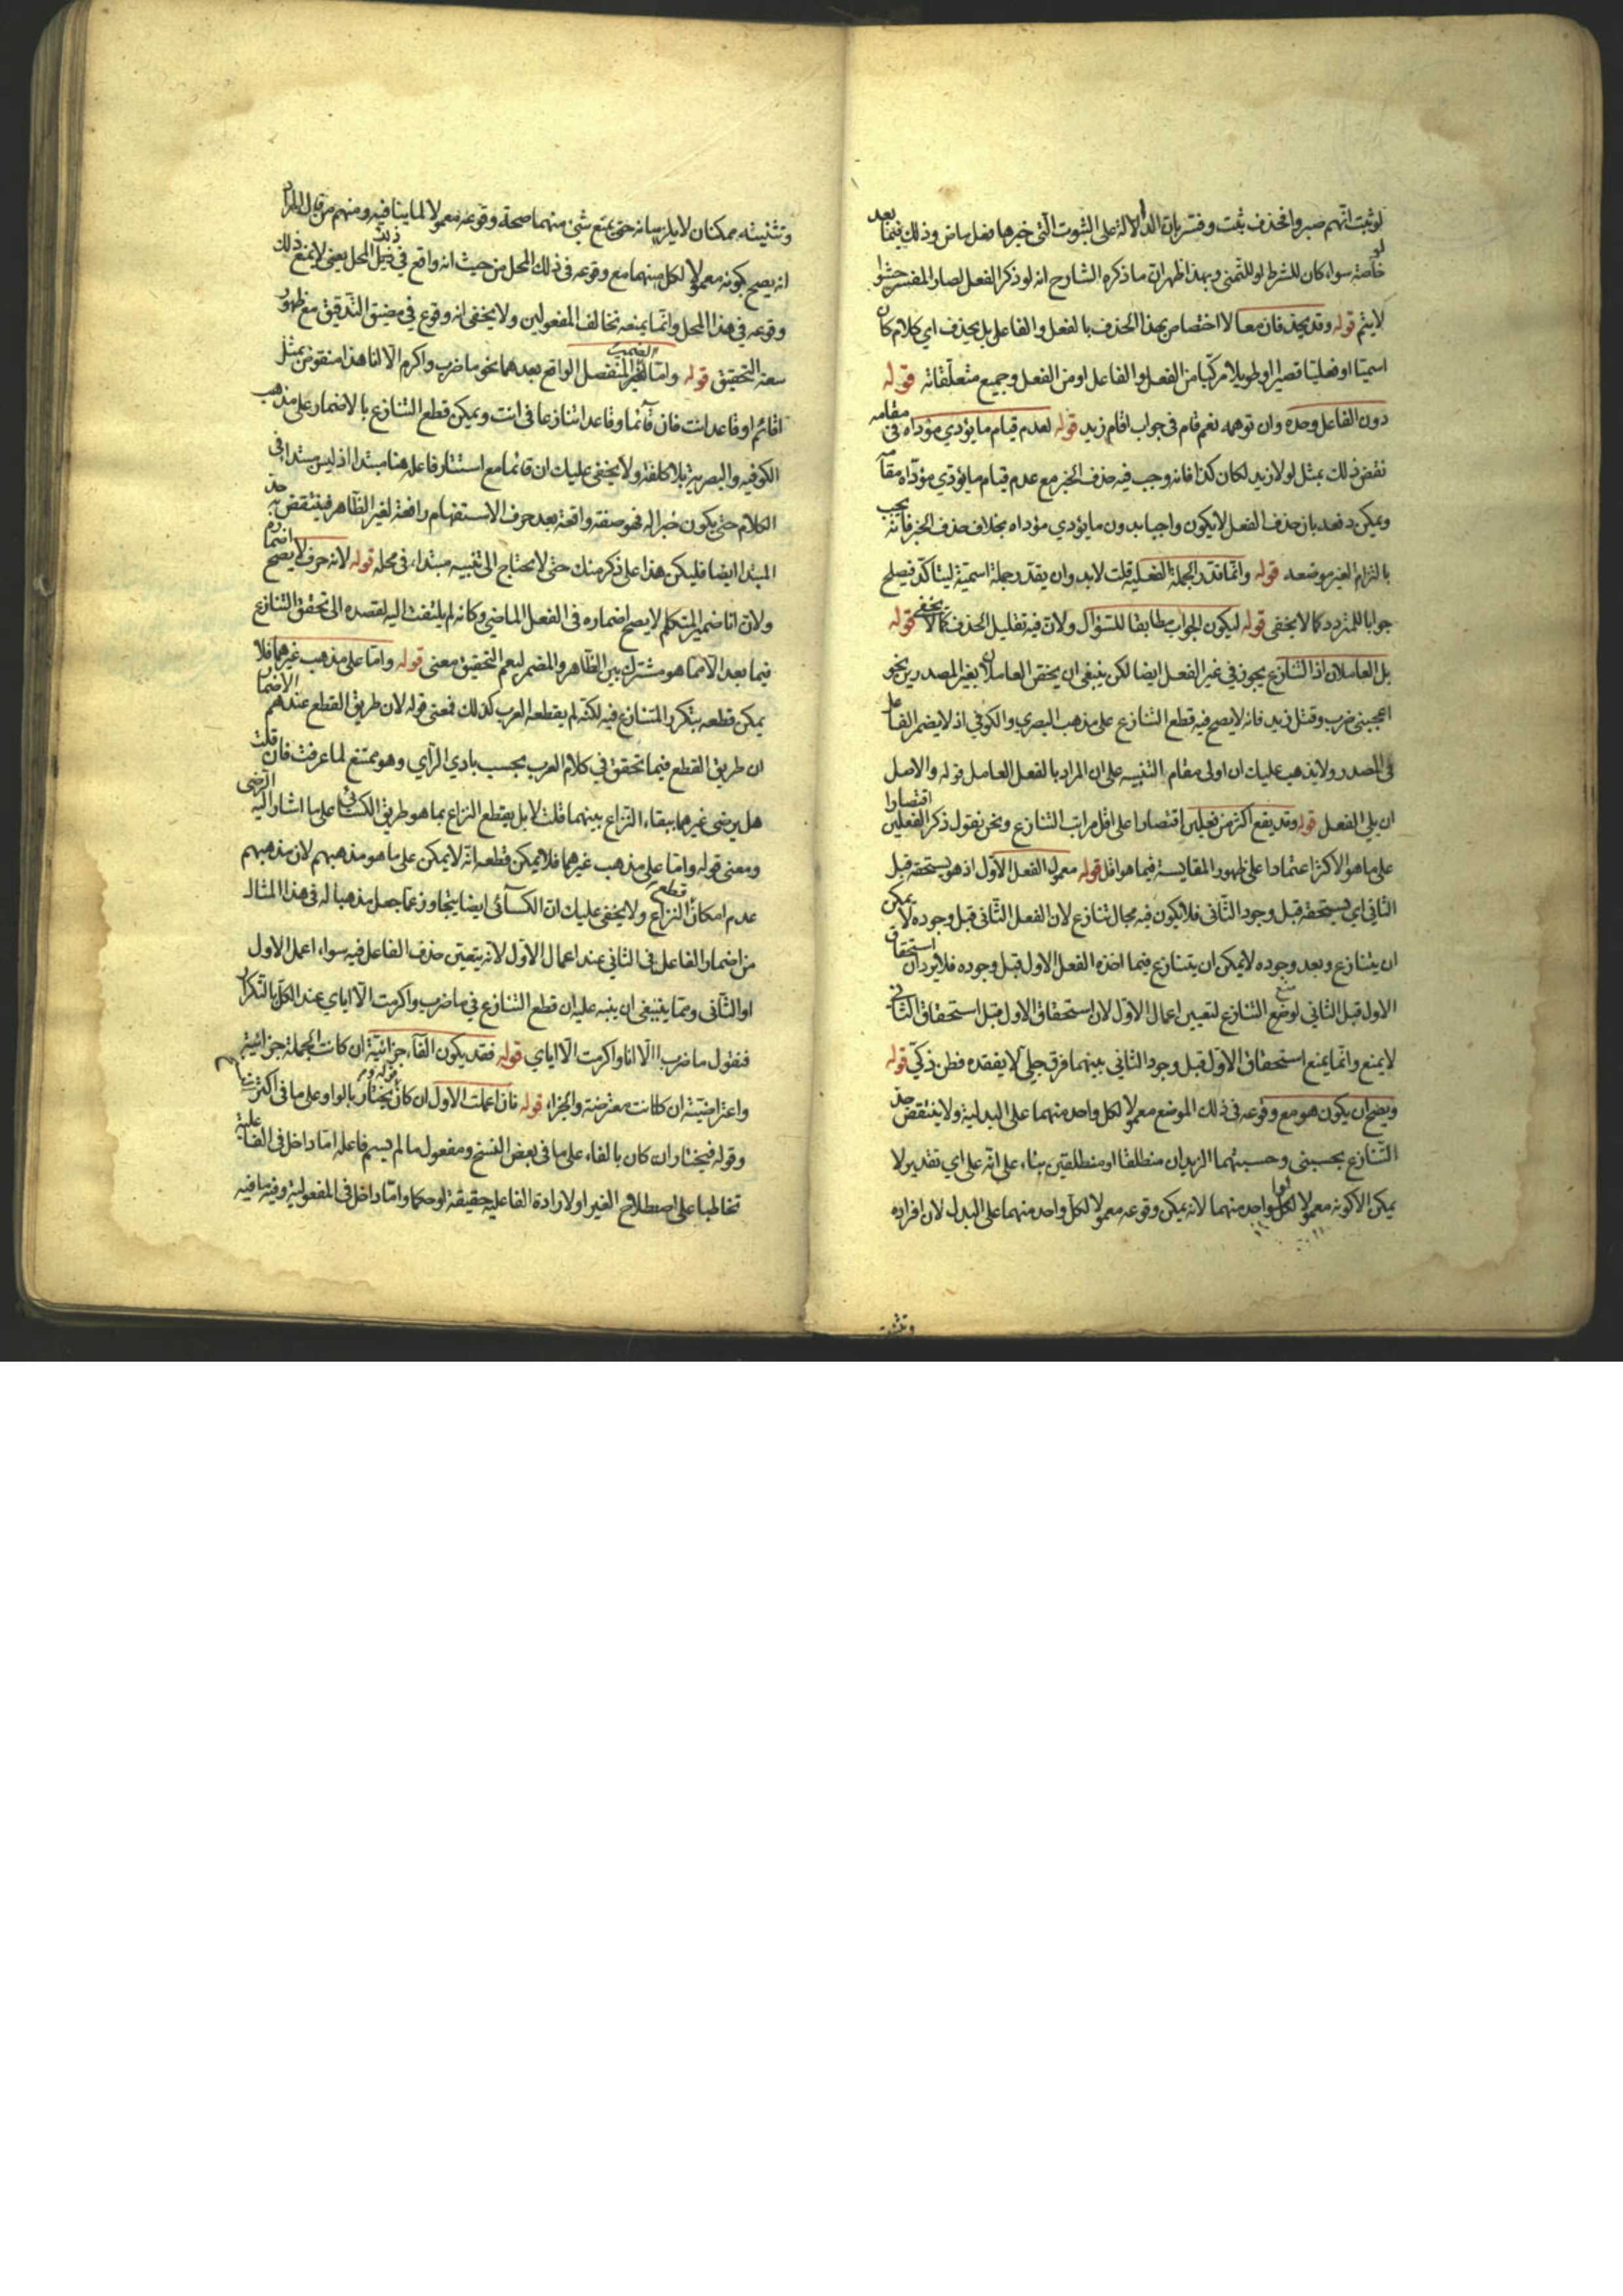 لو ثبت انهم صبروا فحذف ثبت وفسر بان الدالة على الثبوت التي خبرها فعل ماض وذلك فيما بعد لو
خاصة سواء كان للشرط او للتمنى وبهذا ظهر ان ما ذكره الشارح انه لو ذكر الفعل لصار المفسر حشوا
لا يتم قوله وقد يحذفان معا لا اختصاص بهذا الحذف بالفعل والفاعل بل يحذف اي كلام كان
اسميا او فعليا قصيرا او طويلا مركبا من الفعل والفاعل او من الفعل وجميع متعلقاته قوله
دون الفاعل وحده وان توهمه نعم قام في جواب اقام زيد قوله لعدم قيام ما يؤدي مؤداه في مقامه
نقض ذلك بمثل لولا زيد لكان كذا فانه وجب فيه حذف الخبر مع عدم قيام ما يؤدي مؤداه مقامه
ويمكن دفعه بان حذف الفعل لا يكون واجبا بدون ما يؤدي مؤداه بخلاف حذف الخبر فانه يجب
بالتزام الغير موضعه قوله وانما قدر الجملة الفعلية قلت لا بد وان يقدر جملة اسمية ليتأكد فيصلح
جوابا للمتردد كما لا يخفى قوله ليكون الجواب مطابقا للسؤال ولان فيه تقليل الحذف كما لا يخفى قوله
بل العاملان اذ التنازع يجوز في غير الفعل ايضا لكن ينبغي ان يخص العاملان بغير المصدرين نحو
اعجبني ضرب وقتل زيد فانه لا يصح فيه قطع التنازع على مذهب البصري والكوفي اذ لا يضمر الفاعل
في المصدر ولا يذهب عليك ان اولى مقام التنبيه على ان المراد بالفعل العامل قوله والاصل
ان يلي الفعل قوله وقد يقع اكثر من فعلين اقتصارا على اقل مراتب التنازع ونحن نقول ذكر الفعلين اقتصارا
على ما هو الاكثر اعتمادا على ظهور المقايسة فيما هو اقل قوله معمول الفعل الاول اذ هو يستحقه قبل
الثاني اي يستحقه قبل وجود الثاني فلا يكون فيه مجال تنازع لان الفعل الثاني قبل وجوده لا يمكن
ان يتنازع وبعد وجوده لا يمكن ان يتنازع فيما اخذه الفعل الاول قبل وجوده فلا يرد ان استحقاق
الاول قبل الثاني لو منع التنازع لتعيين اعمال الاول لان استحقاق الاول قبل استحقاق الثاني
لا يمنع وانما يمنع استحقاق الاول قبل وجود الثاني بينهما فرق جلي لا يفقده فطن ذكي قوله
ويصح ان يكون هو مع وقوعه في ذلك الموضع معمولا لكل واحد منهما على البدلية ولا ينتقض حد
التنازع بحسبني وحسبتهما الزيدان منطلقا او منطلقين بناء على انه على اي تقدير لا
يمكن الا كونه معمولا لكل واحد منهما لانه يمكن وقوعه معمولا لكل واحد منهما على البدل لان افراده
وتثنيته
وتثنيته ممكنان لا يلزمانه حتى يمتنع شيء منهما صحة وقوعه معمولا لما ينافيه ومنهم من قال المراد
انه يصح كونه معمولا لكل منهما مع وقوعه في ذلك المحل من حيث انه واقع في ذلك المحل يعني لا يمنع ذلك
وقوعه في هذا المحل وانما يمنعه تخالف المفعولين ولا يخفى انه وقوع في مضيق التدقيق مع ظهور
سعة التحقيق قوله واما الضمير المنفصل الواقع بعدهما نحو ما ضرب واكرم الا انا هذا منقوض بمثل
اقائم او قاعد انت فان قائما وقاعدا تنازعا في انت ويمكن قطع التنازع بالاضمار على مذهب
الكوفية والبصرية بلا كلفة ولا يخفى عليك ان قائما مع استتار فاعله هنا مبتدا اذ ليس مبتدا في
الكلام حتى يكون خبرا له فهو صفة واقعة بعد حرف الاستفهام رافعة لغير الظاهر فينتقض به حد
المبتدا ايضا فليكن هذا على ذكر منك حتى لا يحتاج الى تنبيه مبتداء في محله قوله لانه حرف لا يصح اضماره
ولان انا ضمير المتكلم لا يصح اضماره في الفعل الماضي وكانه لم يلتفت اليه لقصده الى تحقق التنازع
فيما بعد الا مما هو مشترك بين الظاهر والمضمر ليعم التحقيق معنى قوله واما على مذهب غيرهما فلا
يمكن قطعه بتكرر المتنازع فيه لكنه لم يقطعه العرب كذلك فمعنى قوله لان طريق القطع عندهم الاضمار
ان طريق القطع فيما تحقق في كلام العرب بحسب بادي الرأي وهو ممتنع لما عرفت فان قلت
هل يرضى غيرهما ببقاء النزاع بينهما قلت لا بل يقطع النزاع بما هو طريق الكسائي على ما اشار اليه الرضى
ومعنى قوله واما على مذهب غيرهما فلا يمكن قطعه انه لا يمكن على ما هو مذهبهم لان مذهبهم
عدم امكان قطع النزاع ولا يخفى عليك ان الكسائي ايضا يتجاوز عما جعل مذهبا له في هذا المثال
من اضمار الفاعل في الثاني عند اعمال الاول لانه يتعين حذف الفاعل فيه سواء اعمل الاول
او الثاني ومما ينبغي ان ينبه عليه ان قطع التنازع في ما ضرب واكرمت الا اياي عند الكل بالتكرار
فنقول ما ضرب الا انا واكرمت الا اياي قوله فقد يكون الفاء جزائية ان كانت الجملة جزائية
واعتراضية ان كانت معترضة والجزاء قوله فان اعملت الاول ان كان قوله ويختار بالواو على ما في اكثر
وقوله فيختار ان كان بالفاء على ما في بعض النسخ ومفعول ما لم يسم فاعله اما داخل في الفاعلية
تخاطبا على اصطلاح الغير او لارادة الفاعلية حقيقة او حكما واما داخل في المفعولية وفيه ما فيه